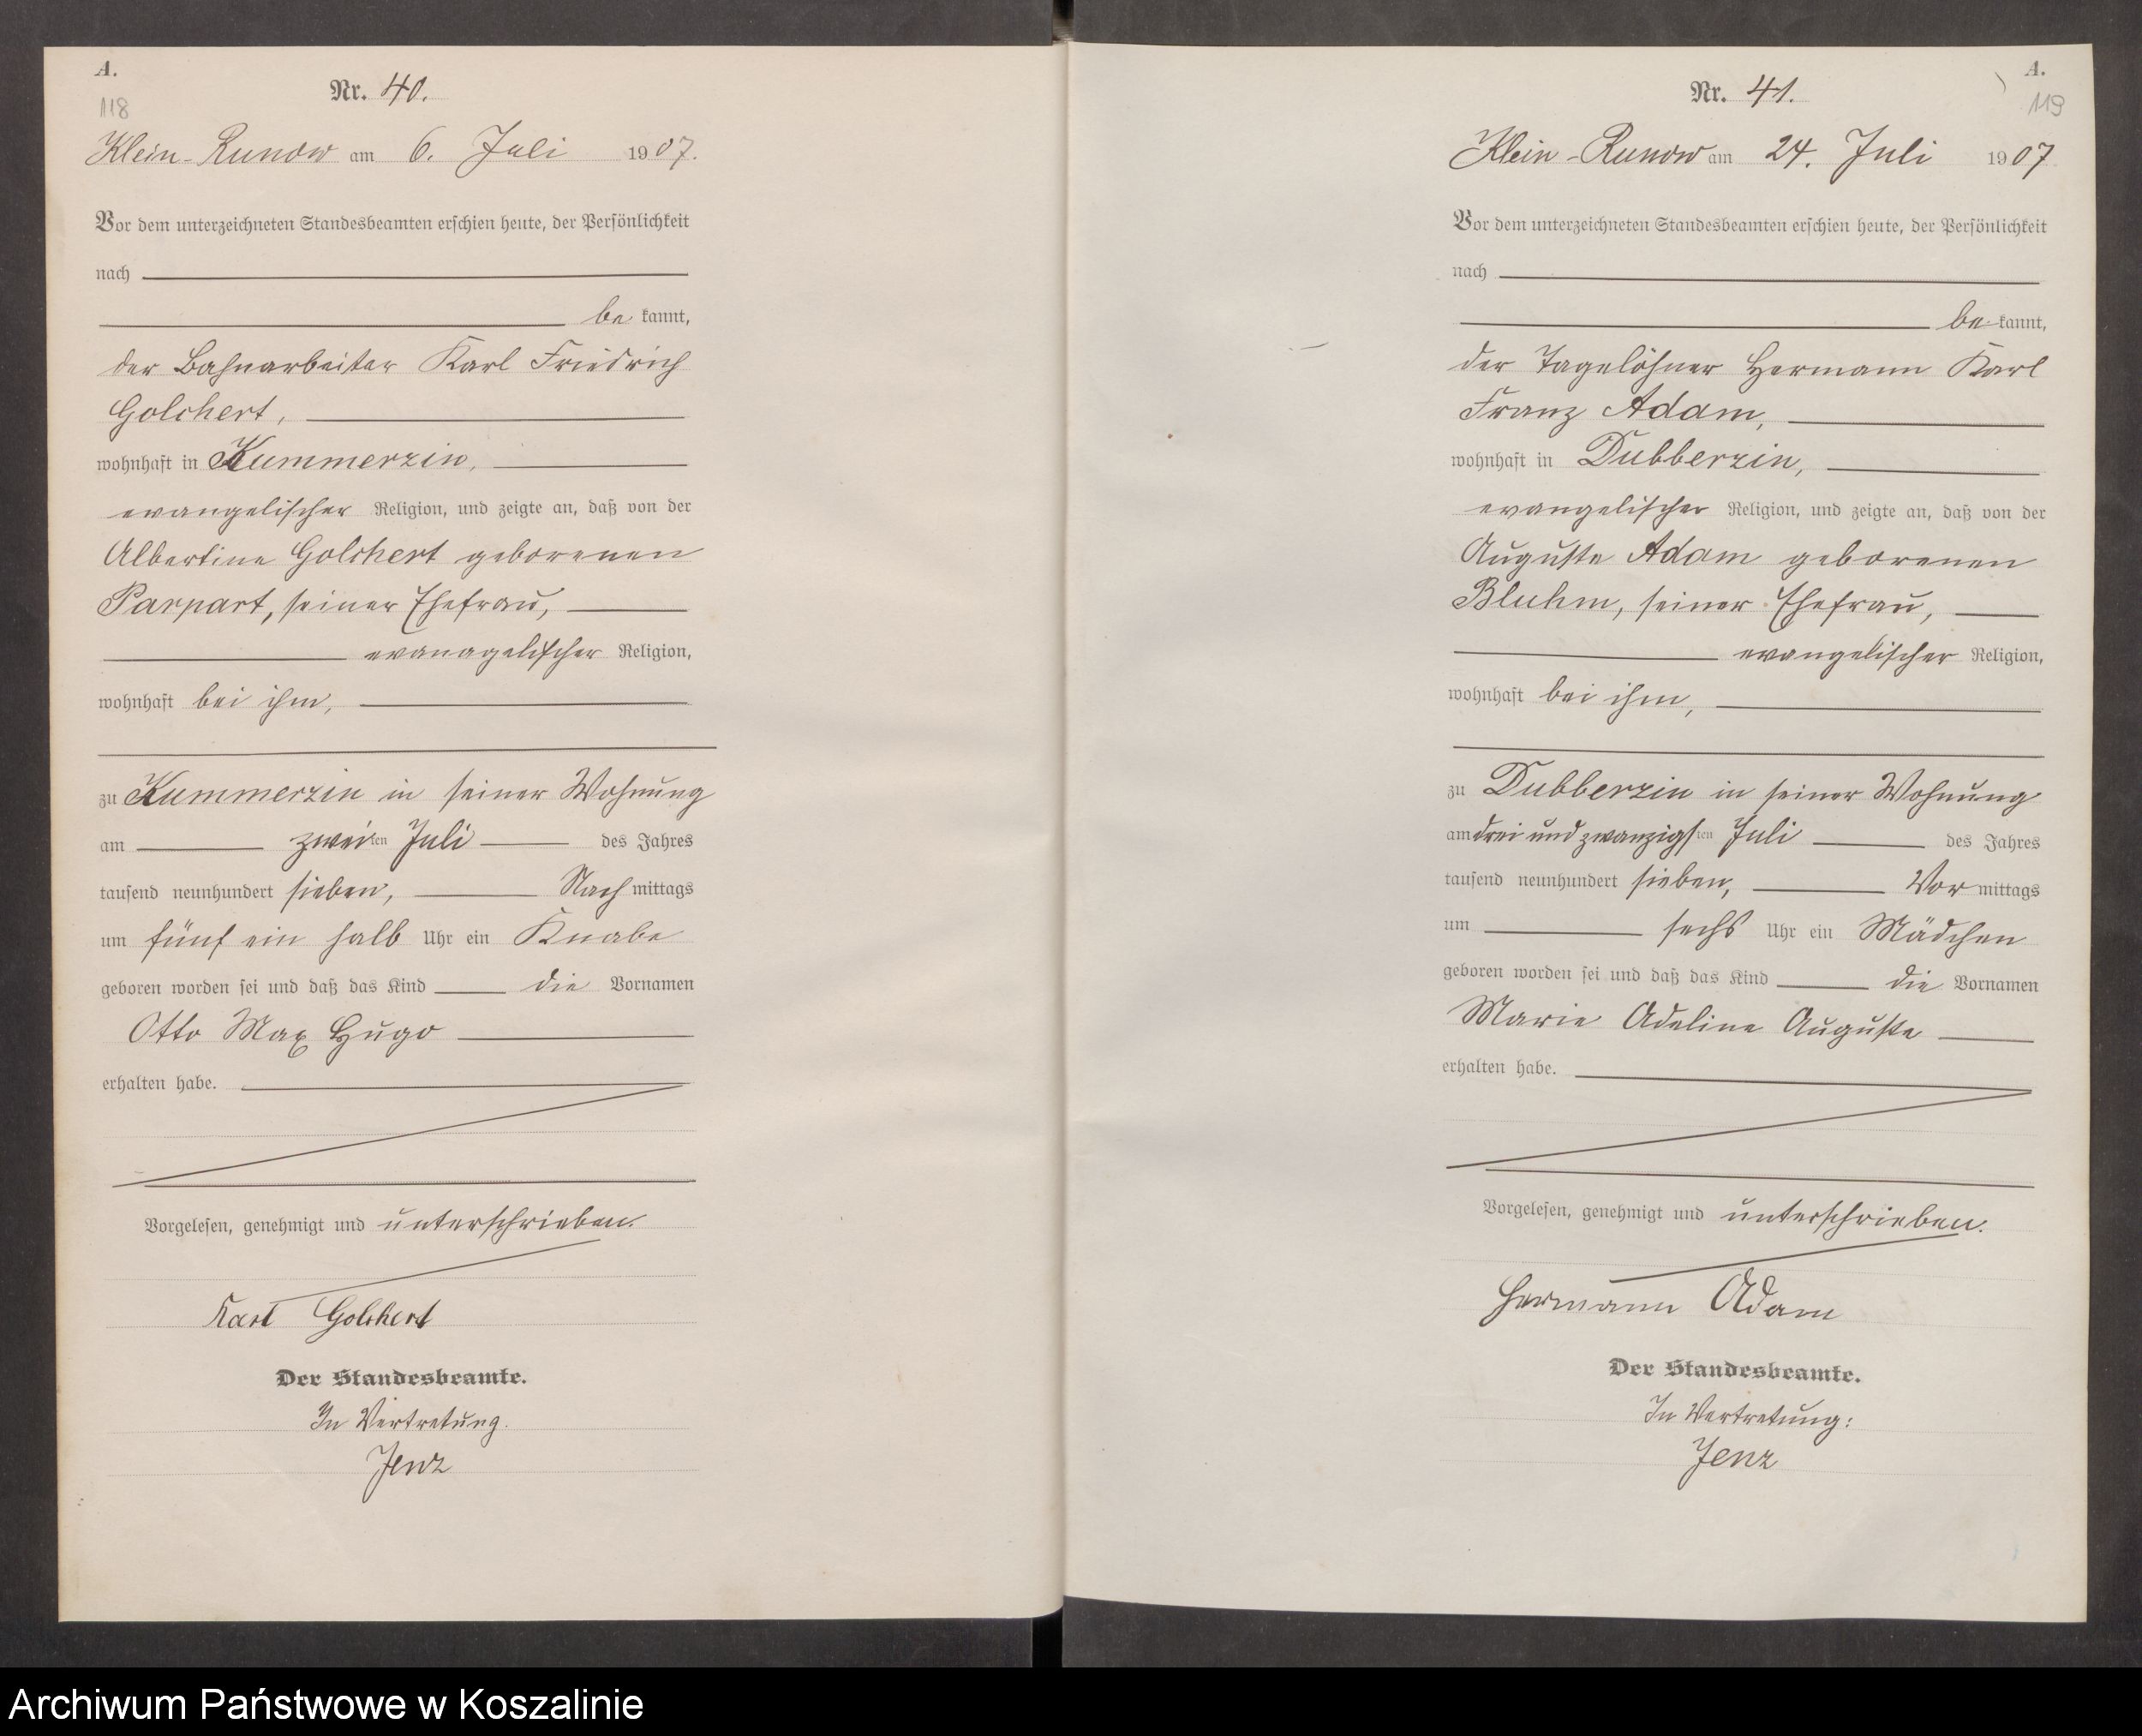 A.
118
Nr. 40.
Klein-Runow am 6. Juli 1907.
Vor dem unterzeichneten Standesbeamten erschien heute, der Persönlichkeit
nach
be kannt,
der Bahnarbeiter Karl Friedrich
Golchert,
wohnhaft in Kummerzin,
evangelischer Religion, und zeigte an, daß von der
Albertine Golchert geborenen
Parpart, seiner Ehefrau,
evanagelischer Religion,
wohnhaft bei ihm,
zu Kummerzin in seiner Wohnung
am zweiten Juli des Jahres
tausend neunhundert sieben, Nach mittags
um fünf ein halb Uhr ein Knabe
geboren worden sei und daß das Kind die Vornamen
Otto Max Hugo
erhalten habe.
Vorgelesen, genehmigt und unterschrieben.
Karl Golchert
Der Standesbeamte.
In Vertretung.
Jenz
A.
119
Nr. 41.
Klein-Runow am 24. Juli 1907
Vor dem unterzeichneten Standesbeamten erschien heute, der Persönlichkeit
nach
be kannt,
der Tagelöhner Hermann Karl
Franz Adam,
wohnhaft in Dubberzin,
evangelischer Religion, und zeigte an, daß von der
Auguste Adam geborenen
Bluhm, seiner Ehefrau,
evangelischer Religion,
wohnhaft bei ihm,
zu Dubberzin in seiner Wohnung
am drei und zwanzigsten Juli des Jahres
tausend neunhundert sieben, Vor mittags
um sechs Uhr ein Mädchen
geboren worden sei und daß das Kind die Vornamen
Marie Adeline Auguste
erhalten habe.
Vorgelesen, genehmigt und unterschrieben.
Hermann Adam
Der Standesbeamte.
In Vertretung:
Jenz
Archiwum Państwowe w Koszalinie